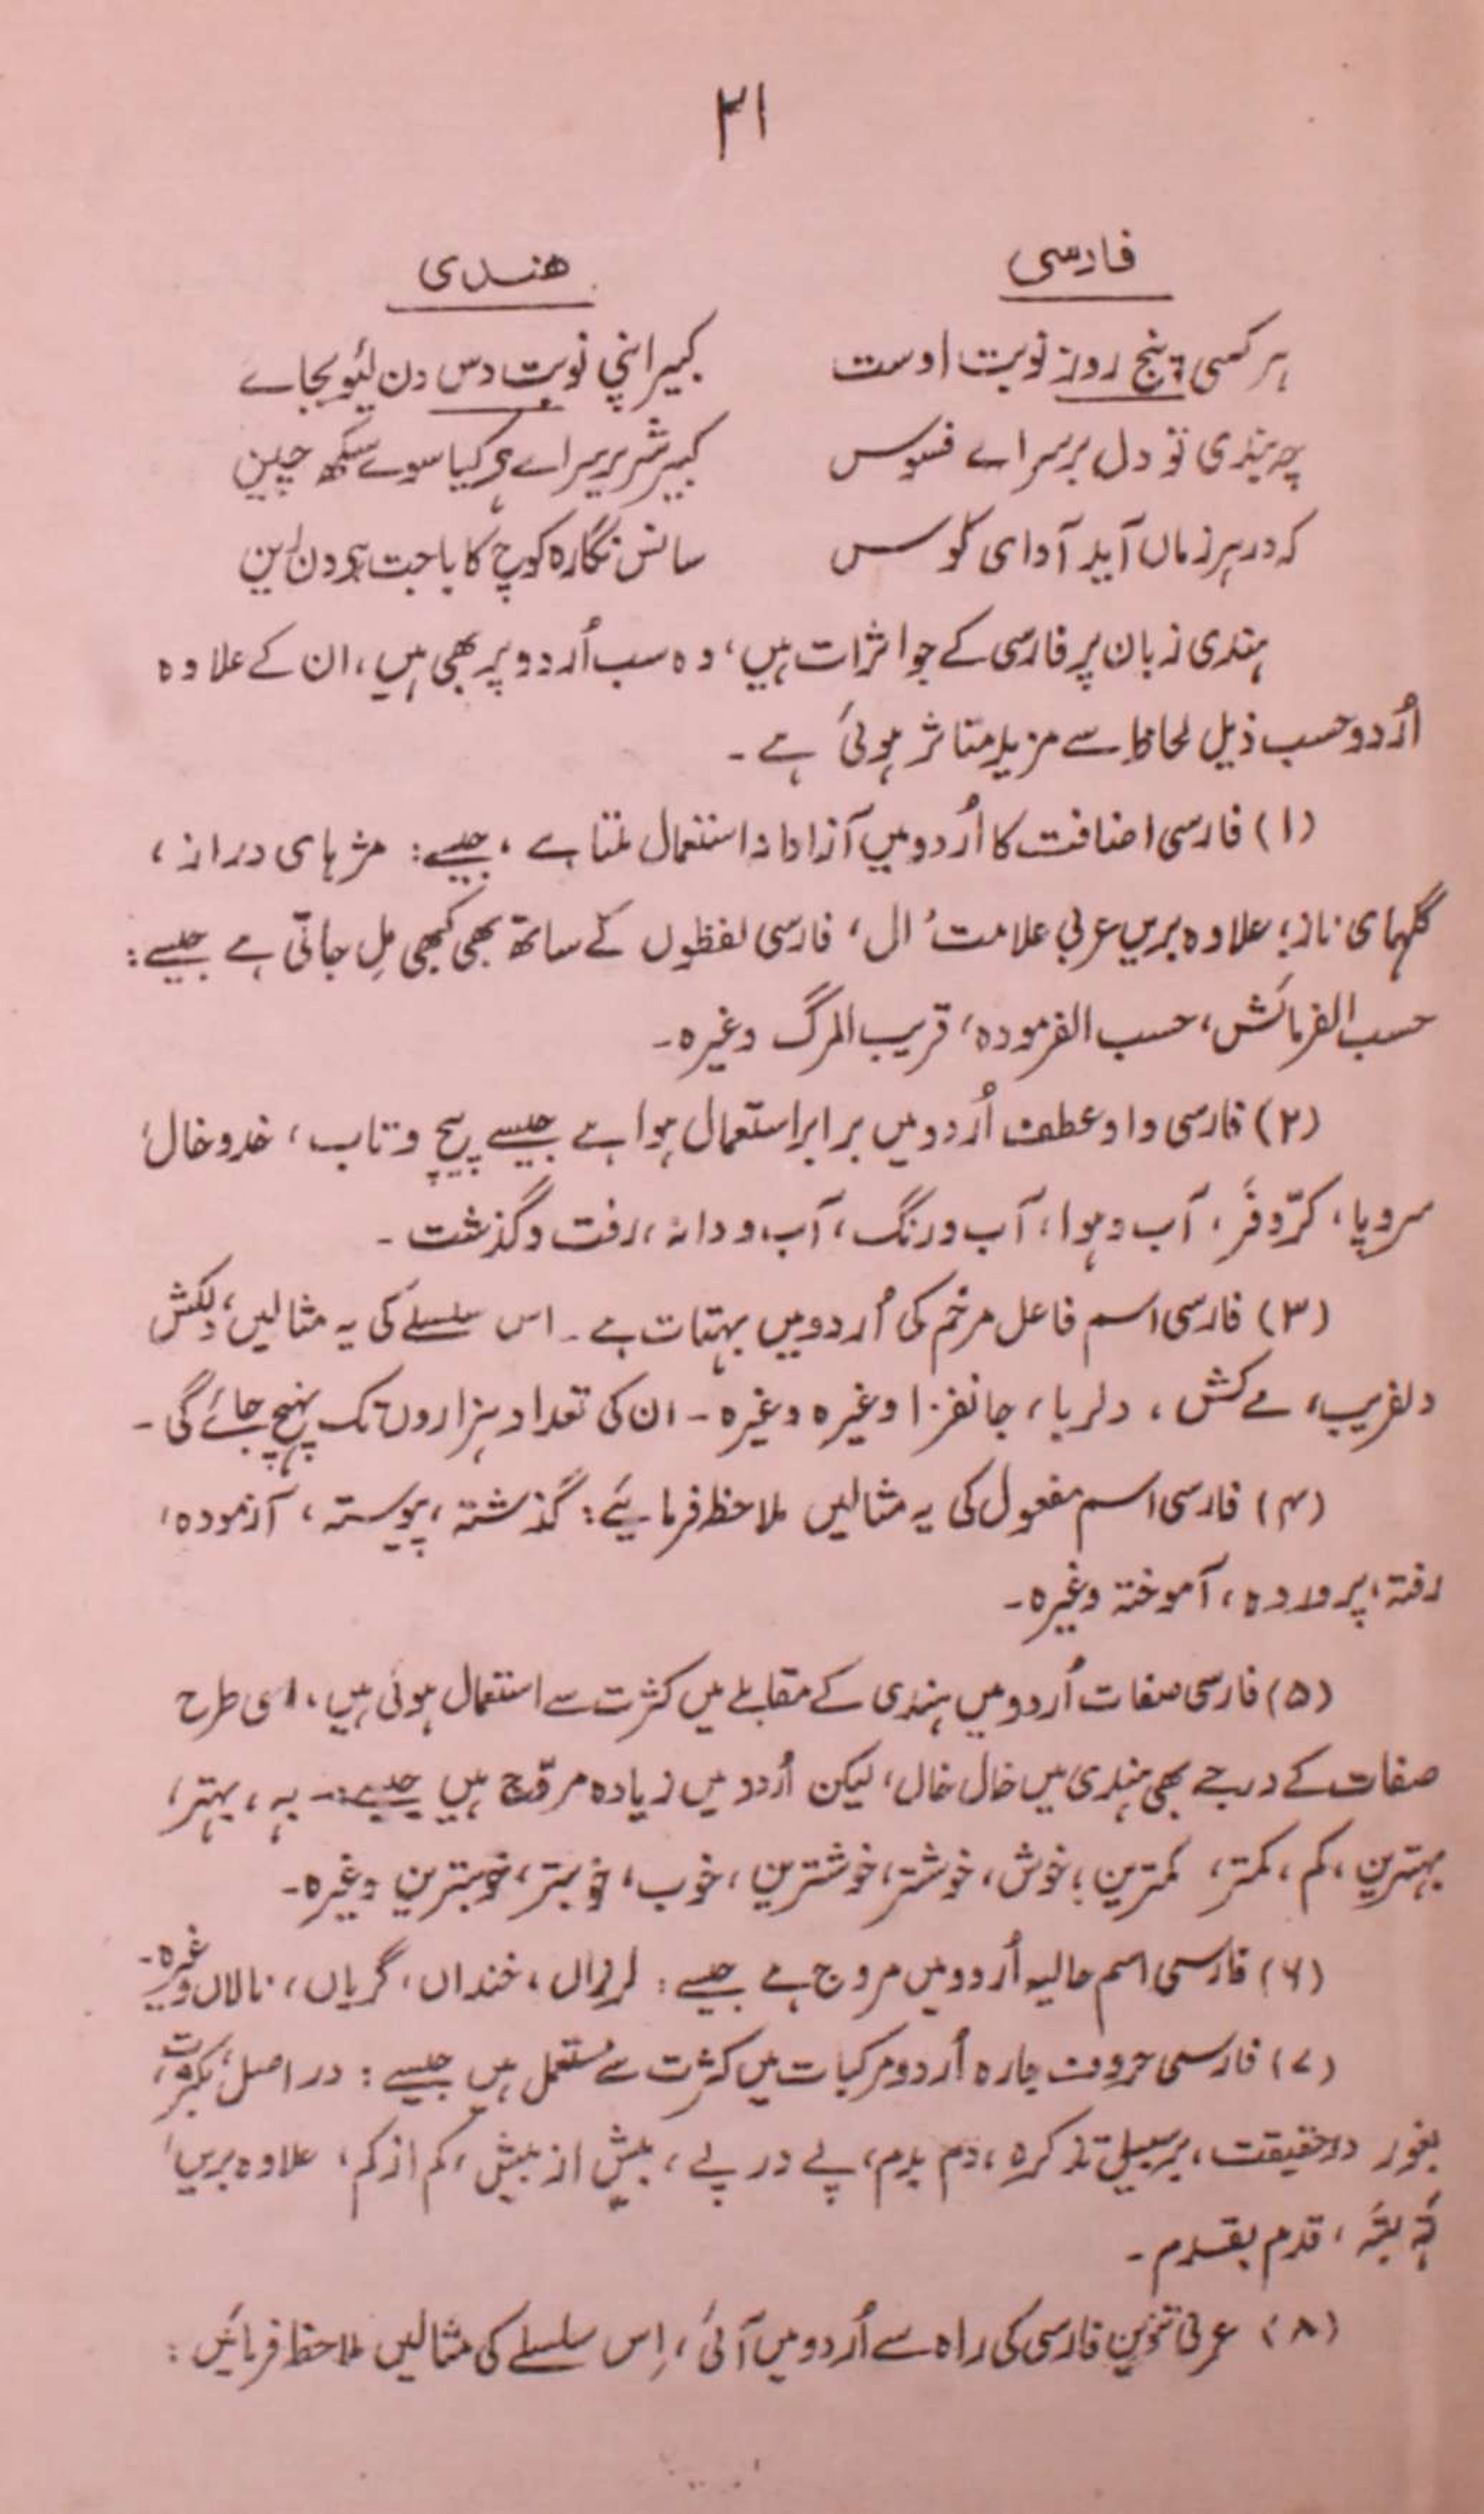 ۳۱
فارسی
ھندی
ہر کسی پنج روز نوبت اوست
کبیر اپنی نوبت دس دن لئیو بجاے
چہ بندی تو دل بر سراے فسوس
کبیر شریر سراے ہے کیا سوے سکھ چین
کہ در ہر زماں آید آوای کوس
سانس نگارہ کوچ کا باجت ہے دن رین
ہندی زبان پر فارسی کے جو اثرات ہیں، وہ سب اُردو پر بھی ہیں، ان کے علاوہ
اُردو حسب ذیل لحاظ سے مزید متاثر ہوئی ہے۔
(۱) فارسی اضافت کا اُردو میں آزادانہ استعمال ملتا ہے، جیسے: مژہای دراز،
گلہای ناز؛ علاوہ بریں عربی علامت ’ال‘ فارسی لفظوں کے ساتھ بھی کبھی مِل جاتی ہے جیسے:
حسب الفرمائش، حسب الفرمودہ، قریب المرگ وغیرہ۔
(۲) فارسی واو عطف اُردو میں برابر استعمال ہوا ہے جیسے پیچ و تاب، خد و خال،
سروپا، کرّوفَر، آب و ہوا، آب ورنگ، آب و دانہ، رفت و گذشت۔
(۳) فارسی اسم فاعل مرخم کی اُردو میں بہتات ہے۔ اس سلسلے کی یہ مثالیں؛ دلکش
دلفریب، مے کش، دلربا، جانفزا وغیرہ وغیرہ۔ ان کی تعداد ہزاروں تک پہنچ جائے گی۔
(۴) فارسی اسم مفعول کی یہ مثالیں ملاحظہ فرمائیے: گذشتہ، پیوستہ، آزمودہ،
رفتہ، پروردہ، آموختہ وغیرہ۔
(۵) فارسی صفات اُردو میں ہندی کے مقابلے میں کثرت سے استعمال ہوئی ہیں، اسی طرح
صفات کے درجے بھی ہندی میں خال خال، لیکن اُردو میں زیادہ مروّج ہیں جیسے:۔ بہ، بہتر،
بہترین، کم، کمتر، کمترین؛ خوش، خوشتر، خوشترین، خوب، خوبتر، خوبترین وغیرہ۔
(۶) فارسی اسم حالیہ اُردو میں مروج ہے جیسے: لرزاں، خنداں، گریاں، نالاں وغیرہ۔
(۷) فارسی حروف جارہ اُردو مرکبات میں کثرت سے مستعمل ہیں جیسے: در اصل، بکثرت،
بغور در حقیقت، بر سبیل تذکرہ، دم بدم، پے در پے، بیش از بیش، کم از کم، علاوہ بریں،
تہ بتہ، قدم بقدم۔
(۸) عربی تنوین فارسی کی راہ سے اُردو میں آئی، اِس سلسلے کی مثالیں ملاحظہ فرمائیں: